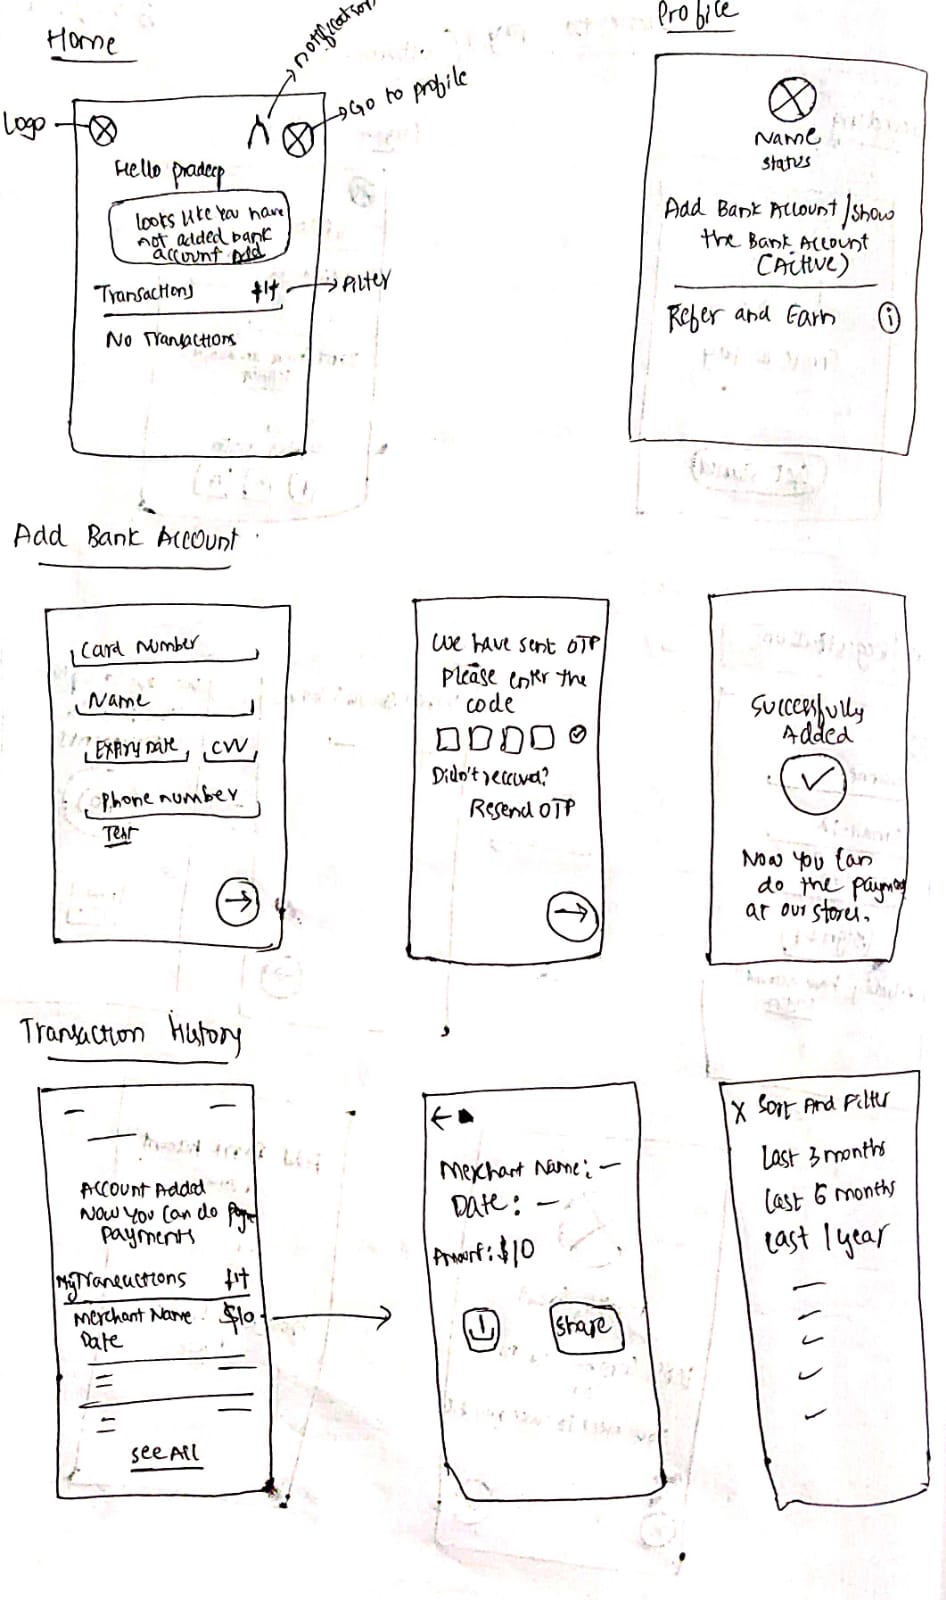 Home
notification
Go to profile
Logo
Hello pradeep
looks like you have
not added bank
account Add
Transactions
Filter
No Transactions
Profile
Name
status
Add Bank Account / show
the Bank Account
(Active)
Refer and Earn i
Add Bank Account
Card number
Name
Expiry Date, CVV
Phone number
Text
We have sent OTP
Please enter the
code
Didn't received?
Resend OTP
Successfully
Added
Now you can
do the payment
at our stores.
Transaction History
Account Added
Now you can do
payments
My Transactions
Merchant Name $10
Date
see All
Merchant Name: —
Date: —
Amount: $10
Share
X Sort And Filter
Last 3 months
Last 6 months
Last 1 year